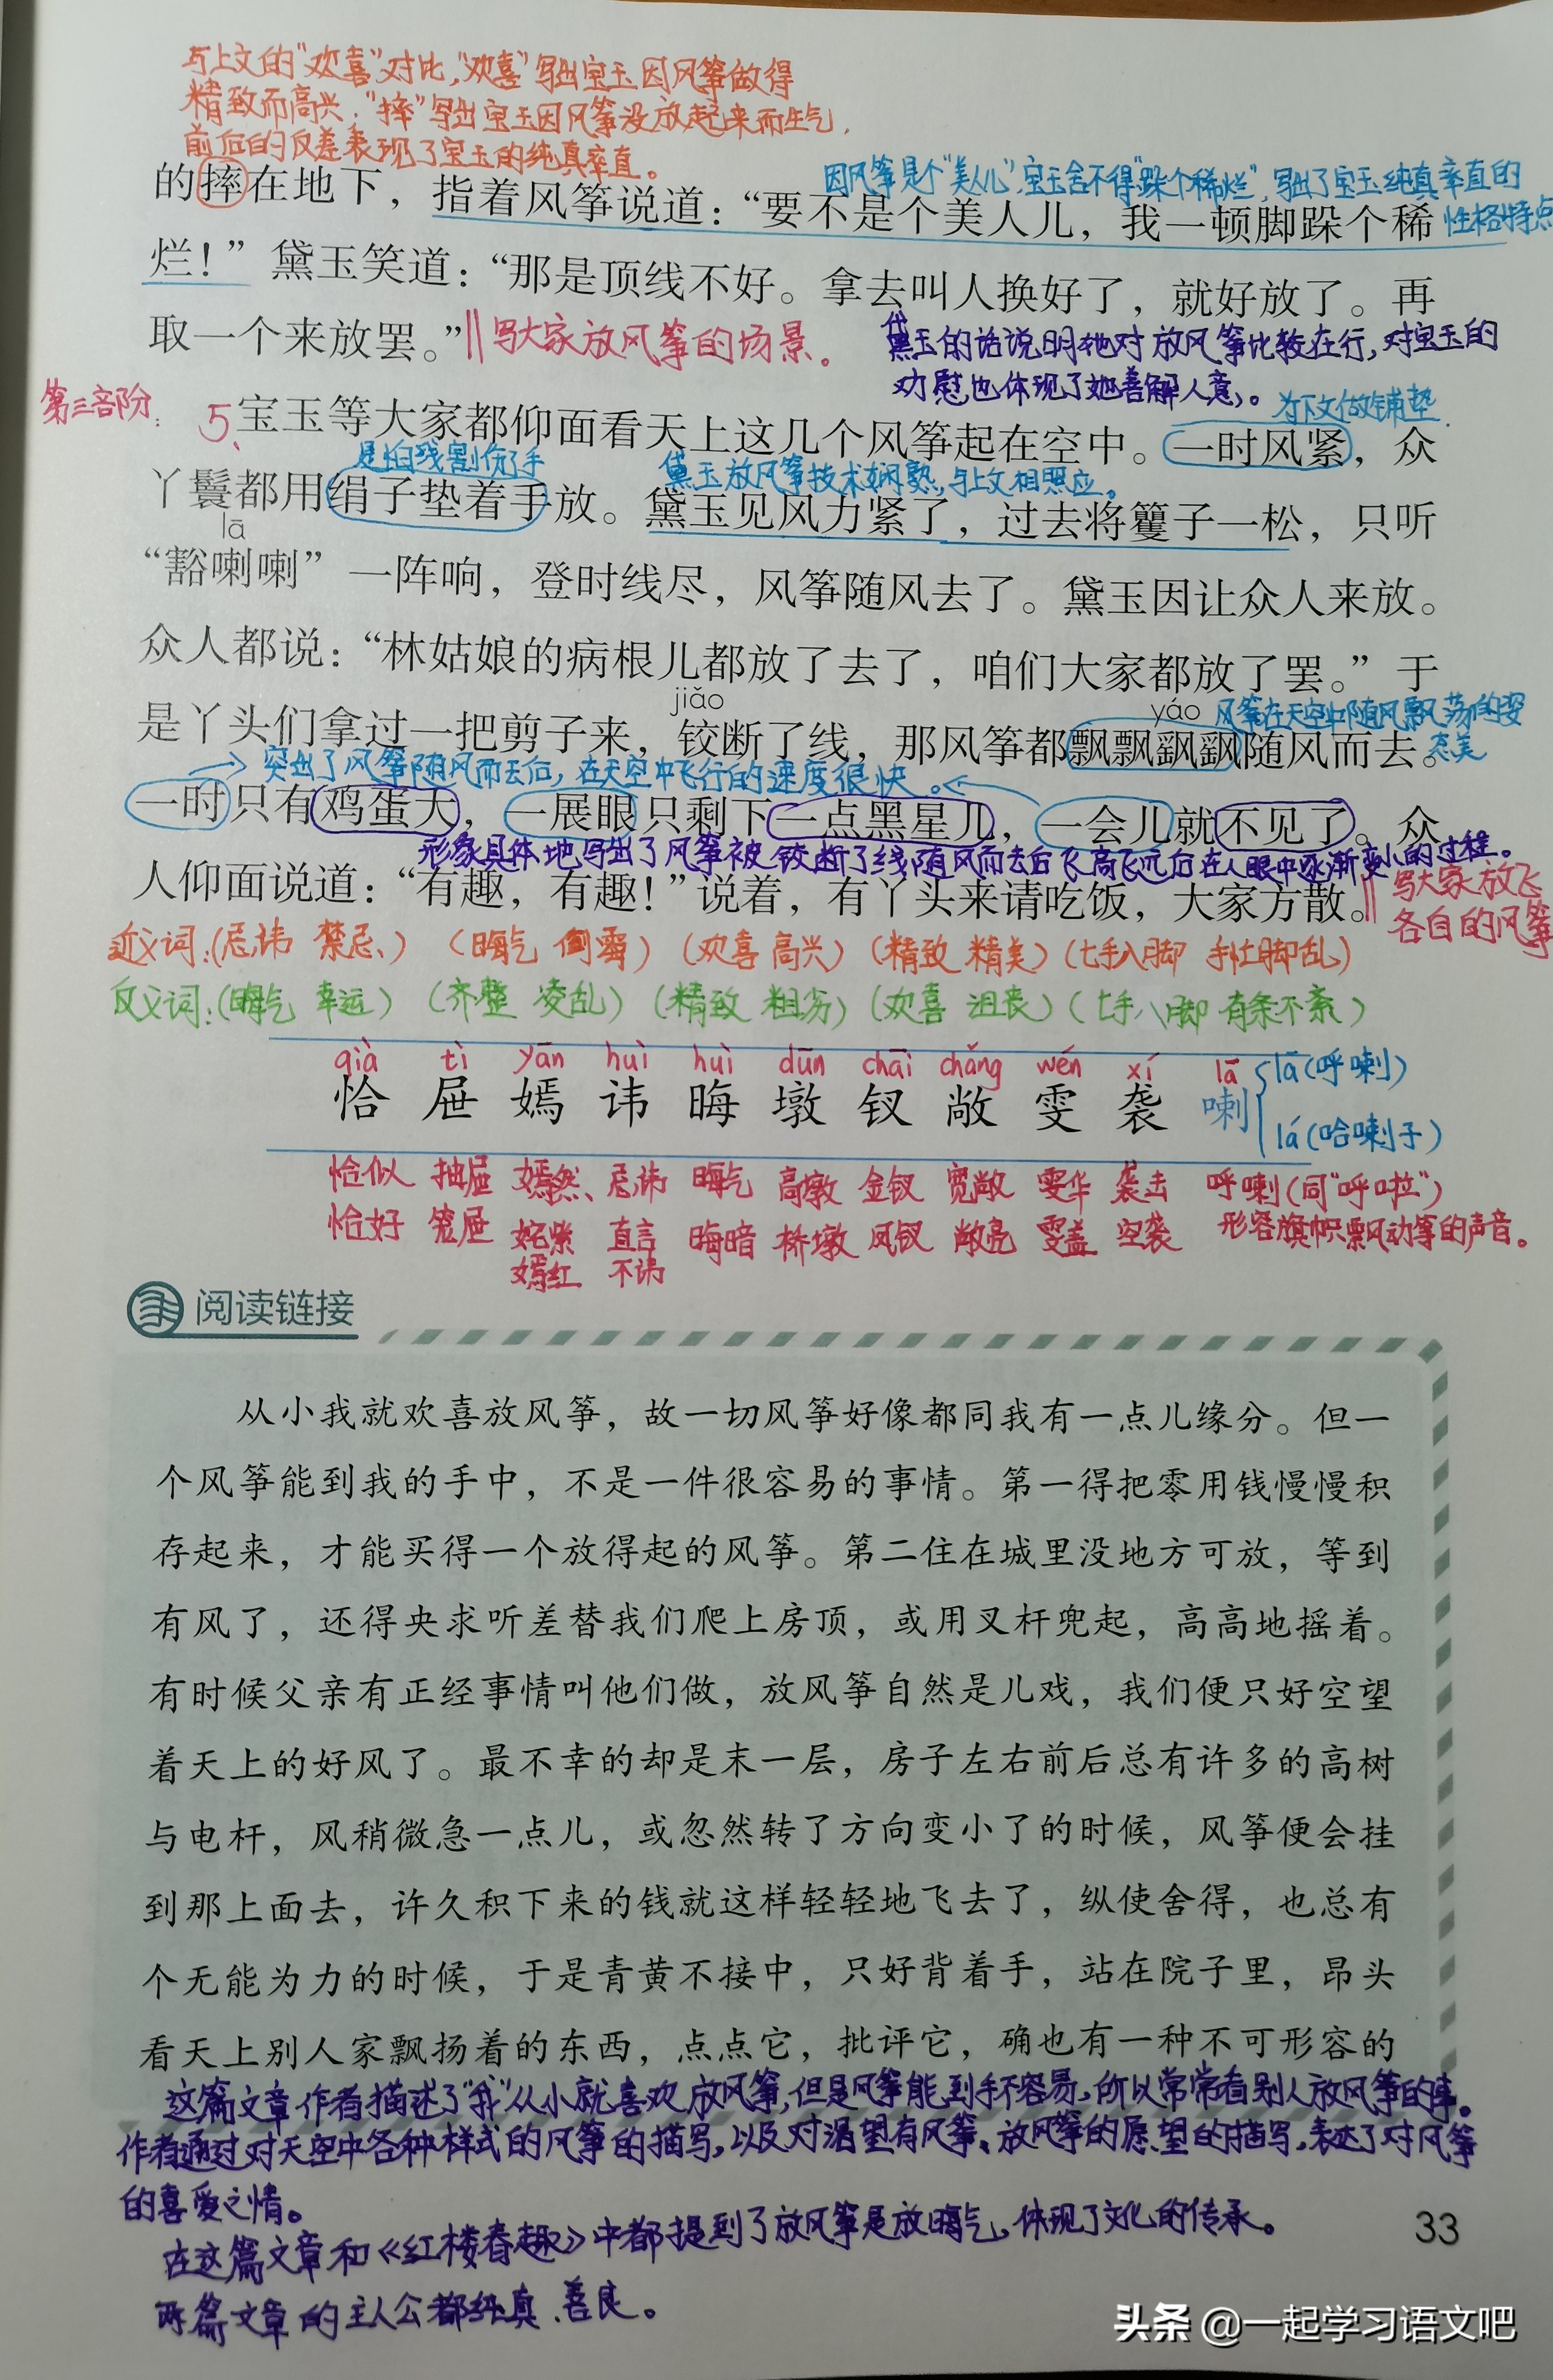 与上文的“欢喜”对比,“欢喜”写出宝玉因风筝做得
精致而高兴,“摔”写出宝玉因风筝没放起来而生气,
前后的反差表现了宝玉的纯真率直。
因风筝是个“美人儿”,宝玉舍不得“跺个稀烂”,写出了宝玉纯真率直的
性格特点
的摔在地下，指着风筝说道：“要不是个美人儿，我一顿脚跺个稀
烂！”黛玉笑道：“那是顶线不好。拿去叫人换好了，就好放了。再
取一个来放罢。”‖写大家放风筝的场景。
黛玉的话说明她对放风筝比较在行,对宝玉的
劝慰也体现了她善解人意。
为下文做铺垫
第三部分:
5、宝玉等大家都仰面看天上这几个风筝起在空中。一时风紧，众
是怕线割伤了手
黛玉放风筝技术娴熟,与上文相照应。
丫鬟都用绢子垫着手放。黛玉见风力紧了，过去将籰子一松，只听
lā
“豁喇喇”一阵响，登时线尽，风筝随风去了。黛玉因让众人来放。
众人都说：“林姑娘的病根儿都放了去了，咱们大家都放了罢。”于
jiǎo
yáo 风筝在天空中随风飘荡的姿
态美
是丫头们拿过一把剪子来，铰断了线，那风筝都飘飘飖飖随风而去。
突出了风筝随风而去后,在天空中飞行的速度很快。
一时只有鸡蛋大，一展眼只剩下一点黑星儿，一会儿就不见了。众
形象具体地写出了风筝被铰断了线随风而去后飞高飞远后在人眼中逐渐变小的过程。
人仰面说道：“有趣，有趣！”说着，有丫头来请吃饭，大家方散。‖写大家放飞
各自的风筝
近义词:(忌讳 禁忌) (晦气 倒霉) (欢喜 高兴) (精致 精美) (七手八脚 手忙脚乱)
反义词:(晦气 幸运) (齐整 凌乱) (精致 粗劣) (欢喜 沮丧) (七手八脚 有条不紊)
qià tì yān huì huì dūn chāi chǎng wén xí lā
恰 屉 嫣 讳 晦 墩 钗 敞 雯 袭 喇
lā(呼喇)
lá(哈喇子)
恰似 抽屉 嫣然、 忌讳 晦气 高墩 金钗 宽敞 雯华 袭击 呼喇(同“呼啦”)
恰好 笼屉 姹紫 直言 晦暗 桥墩 凤钗 敞亮 雯盖 空袭 形容旗帜飘动等的声音。
嫣红 不讳
阅读链接
从小我就欢喜放风筝，故一切风筝好像都同我有一点儿缘分。但一
个风筝能到我的手中，不是一件很容易的事情。第一得把零用钱慢慢积
存起来，才能买得一个放得起的风筝。第二住在城里没地方可放，等到
有风了，还得央求听差替我们爬上房顶，或用叉杆兜起，高高地摇着。
有时候父亲有正经事情叫他们做，放风筝自然是儿戏，我们便只好空望
着天上的好风了。最不幸的却是末一层，房子左右前后总有许多的高树
与电杆，风稍微急一点儿，或忽然转了方向变小了的时候，风筝便会挂
到那上面去，许久积下来的钱就这样轻轻地飞去了，纵使舍得，也总有
个无能为力的时候，于是青黄不接中，只好背着手，站在院子里，昂头
看天上别人家飘扬着的东西，点点它，批评它，确也有一种不可形容的
这篇文章作者描述了“我”从小就喜欢放风筝,但是风筝能到手不容易,所以常常看别人放风筝的事。
作者通过对天空中各种样式的风筝的描写,以及对渴望有风筝、放风筝的愿望的描写,表达了对风筝
的喜爱之情。
在这篇文章和《红楼春趣》中都提到了放风筝是放晦气,体现了文化的传承。
两篇文章的主人公都纯真、善良。
33
头条 @一起学习语文吧